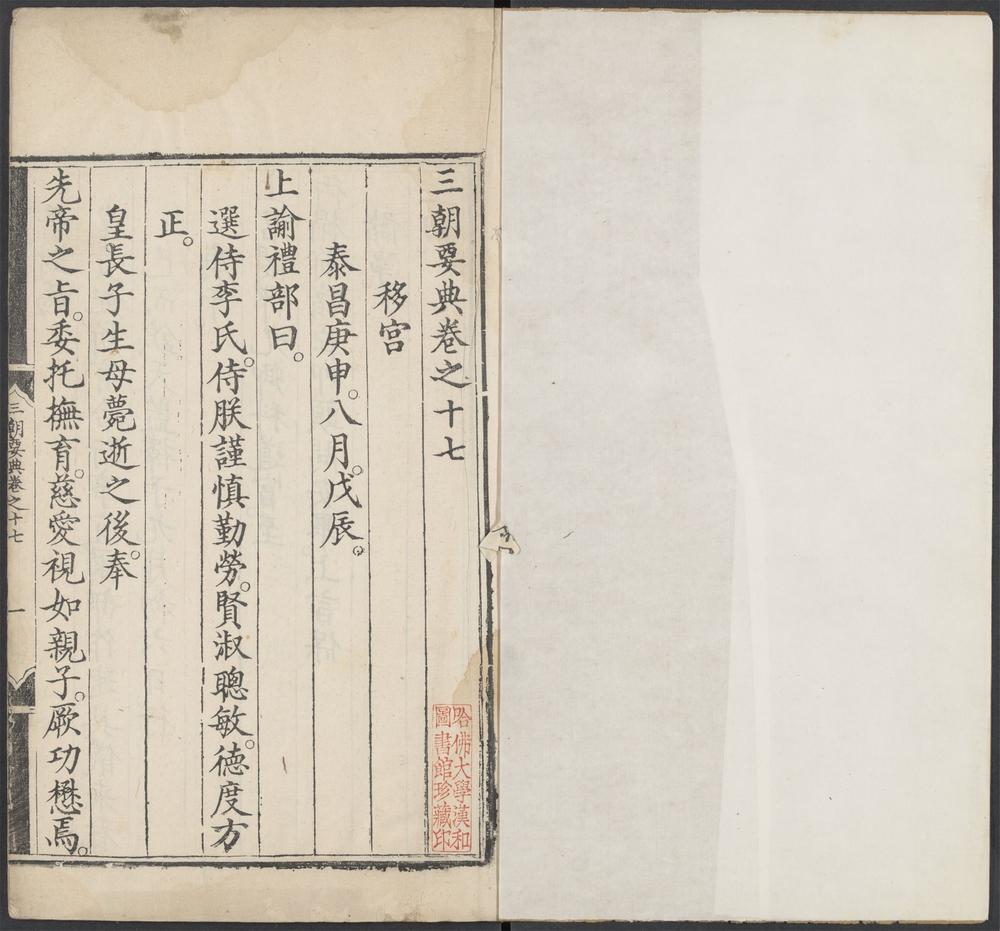 三朝要典卷之十七
移宫
泰昌庚申。八月。戊辰。
上諭禮部曰。
選侍李氏。侍朕謹慎勤勞。賢淑聰敏。德度方
正。
皇長子生母薨逝之後。奉
先帝之旨。委托撫育。慈愛視如親子。厥功懋焉。
三朝要典卷之十七
一
哈佛大學漢和
圖書館珍藏印